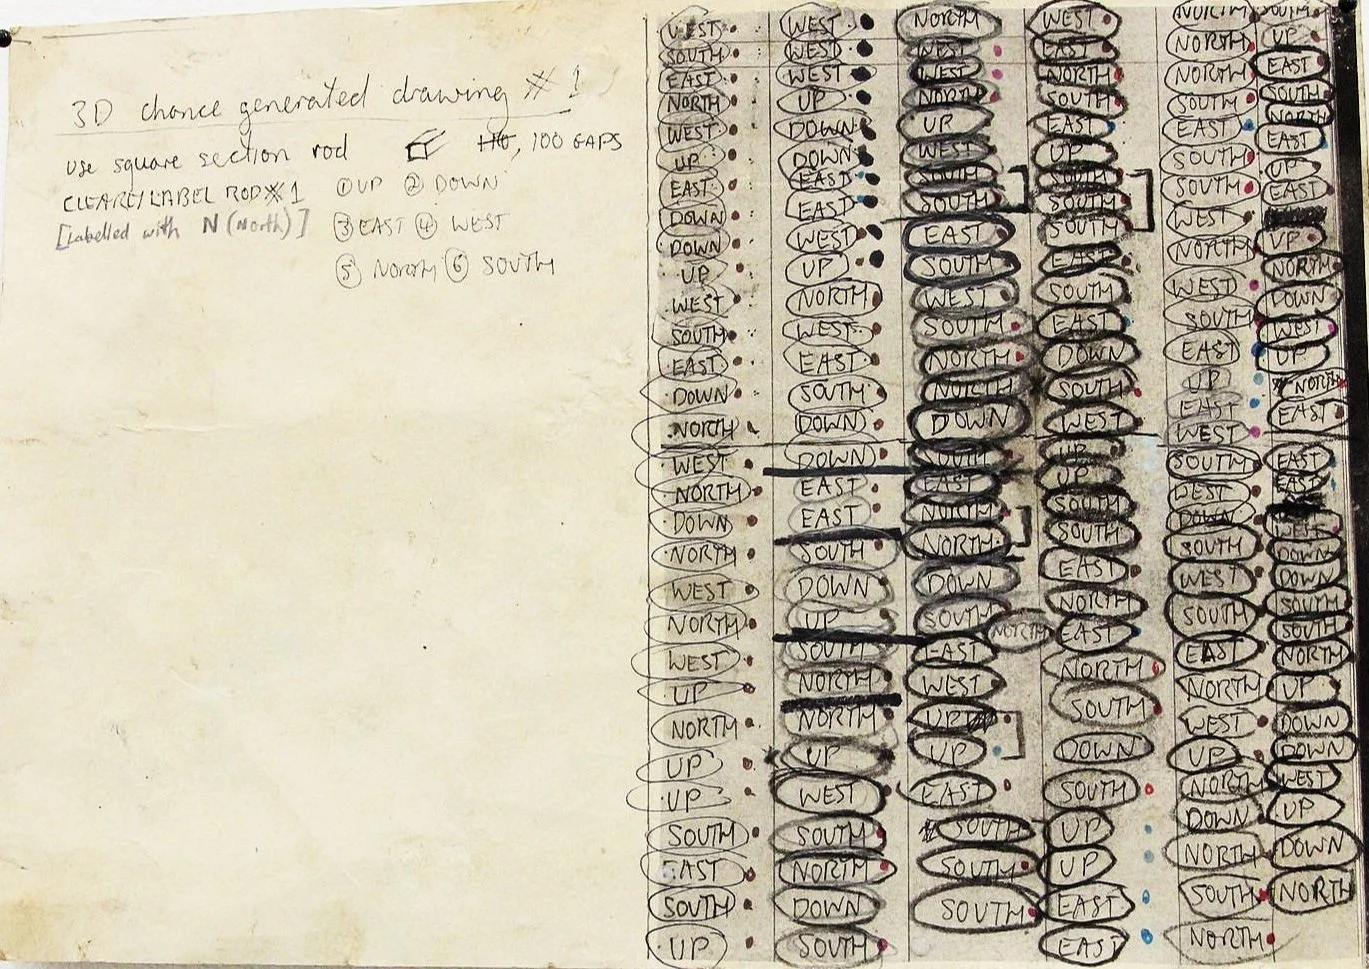 3D chance generated drawing # 1
use square section rod HO, 100 GAPS
CLEARE/LABEL ROD # 1 ① UP ② DOWN
[Labelled with N (North)] ③ EAST ④ WEST
⑤ NORTH ⑥ SOUTH
WEST
SOUTH
EAST
NORTH
WEST
UP
EAST
DOWN
DOWN
UP
WEST
SOUTH
EAST
DOWN
NORTH
WEST
NORTH
DOWN
NORTH
WEST
NORTH
WEST
UP
NORTH
UP
UP
SOUTH
EAST
SOUTH
UP
WEST
WEST
WEST
UP
DOWN
DOWN
EAST
EAST
WEST
UP
NORTH
WEST
EAST
SOUTH
DOWN
DOWN
EAST
EAST
SOUTH
DOWN
UP
SOUTH
NORTH
NORTH
UP
WEST
SOUTH
NORTH
DOWN
SOUTH
NORTH
WEST
WEST
NORTH
UP
WEST
SOUTH
SOUTH
EAST
SOUTH
WEST
SOUTH
NORTH
NORTH
DOWN
SOUTH
EAST
NORTH
NORTH
DOWN
SOUTH
NORTH
EAST
WEST
UP
UP
EAST
SOUTH
SOUTH
SOUTH
WEST
EAST
NORTH
SOUTH
EAST
UP
SOUTH
SOUTH
SOUTH
EAST
SOUTH
EAST
DOWN
SOUTH
WEST
UP
UP
SOUTH
SOUTH
EAST
NORTH
EAST
NORTH
SOUTH
DOWN
SOUTH
UP
UP
EAST
EAST
NORTH
NORTH
NORTH
SOUTH
EAST
SOUTH
SOUTH
WEST
NORTH
WEST
SOUTH
EAST
UP
EAST
WEST
SOUTH
WEST
DOWN
SOUTH
WEST
SOUTH
EAST
NORTH
WEST
UP
NORTH
DOWN
NORTH
SOUTH
NORTH
SOUTH
UP
EAST
SOUTH
NORTH
EAST
UP
EAST
UP
NORTH
DOWN
WEST
UP
NORTH
EAST
EAST
EAST
DOWN
DOWN
SOUTH
SOUTH
NORTH
UP
DOWN
DOWN
WEST
UP
DOWN
NORTH